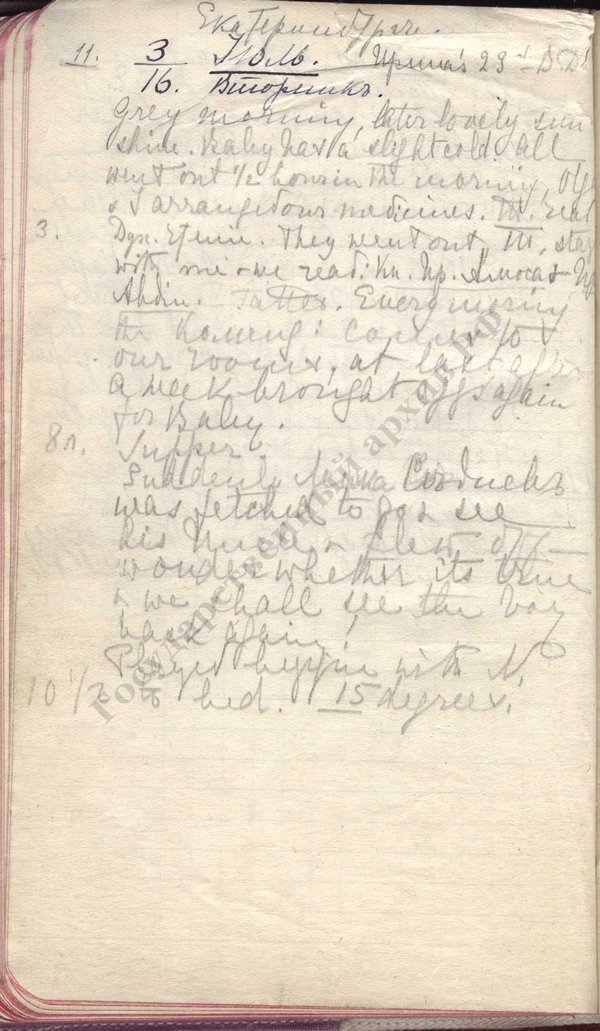 Екатеринбург.
11. 3/16. Июль. Ирина's 23rd B.D.
Вторникъ.
Grey morning, later lovely sun
shine. Baby has a slight cold. All
went out ½ hour in the morning, Olga
& I arranged our medicines. T. read
3. Дух. Чтение. They went out, T. stay
with me & we read: Кн. Пр. Амоса & Пр.
Авдія. Tatted. Every morning
the Komend: comes to
our rooms, at last after
a week brought eggs again
for Baby.
8h. Supper
Suddenly Лёнька Седневъ
was fetched to go & see
his Uncle & flew off –
wonder whether its true
& we shall see the boy
back again!
Played bezique with N.
10 ½ to bed. 15 degrees.
Государственный архив РФ